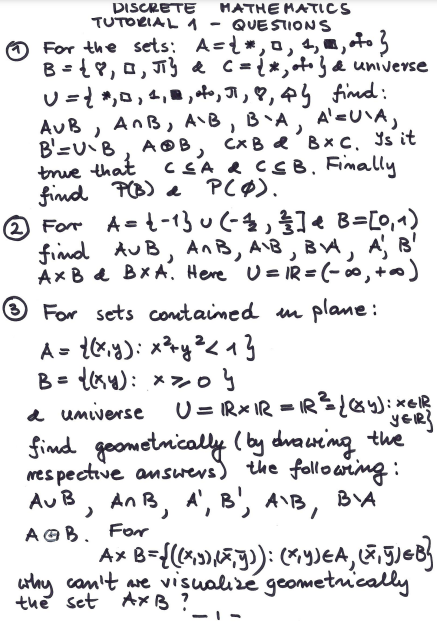 DISCRETE MATHEMATICS
TUTORIAL 1 - QUESTIONS
① For the sets: A={*, □, 1, ■, ⚬}
B={♀, □, π} & C={*, ⚬} & universe
U={*, □, 1, ■, ⚬, π, ♀, 4} find:
A∪B, A∩B, A\B, B\A, A'=U\A,
B'=U\B, A⊕B, C×B & B×C. Is it
true that C⊆A & C⊆B. Finally
find P(B) & P(∅).
② For A={-1}∪(-1/2, 2/3] & B=[0,1)
find A∪B, A∩B, A\B, B\A, A', B'
A×B & B×A. Here U=ℝ=(-∞,+∞)
③ For sets contained in plane:
A={(x,y): x²+y²<1}
B={(x,y): x≥0}
& universe U=ℝ×ℝ=ℝ²={(x,y): x∈ℝ
y∈ℝ}
find geometrically (by drawing the
respective answers) the following:
A∪B, A∩B, A', B', A\B, B\A
A⊕B. For
A×B={((x,y),(x̄,ȳ)): (x,y)∈A, (x̄,ȳ)∈B}
why can't we visualize geometrically
the set A×B?
-1-